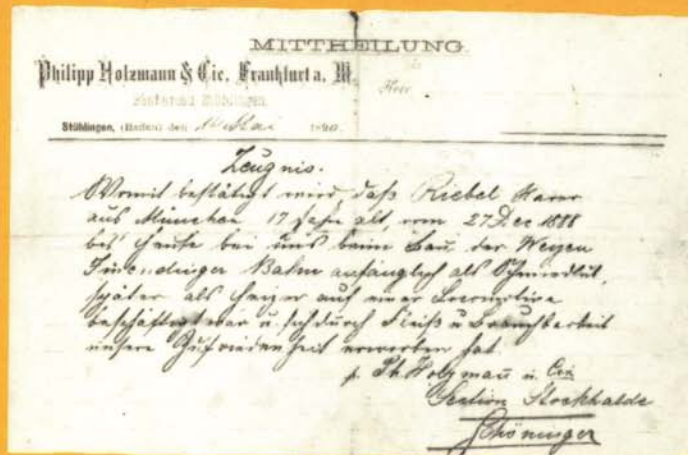 MITTHEILUNG
Philipp Holzmann & Cie. Frankfurt a. M.
Stühlingen, (Baden) den Mai 1890.
Zeugnis.
Womit bestätigt wird, daß Riebel Xaver
aus München 17 Jahr alt, vom 27 Dec 1888
bis heute bei uns beim Bau der Weizen
Immendinger Bahn anfänglich als
später als Heizer auf einer Locomotive
beschäftigt war u. sich durch Fleiß u. Brauchbarkeit
unsere Zufriedenheit erworben hat.
p. Ph Holzmann u. Cie
Section Stockhalde
Schöninger